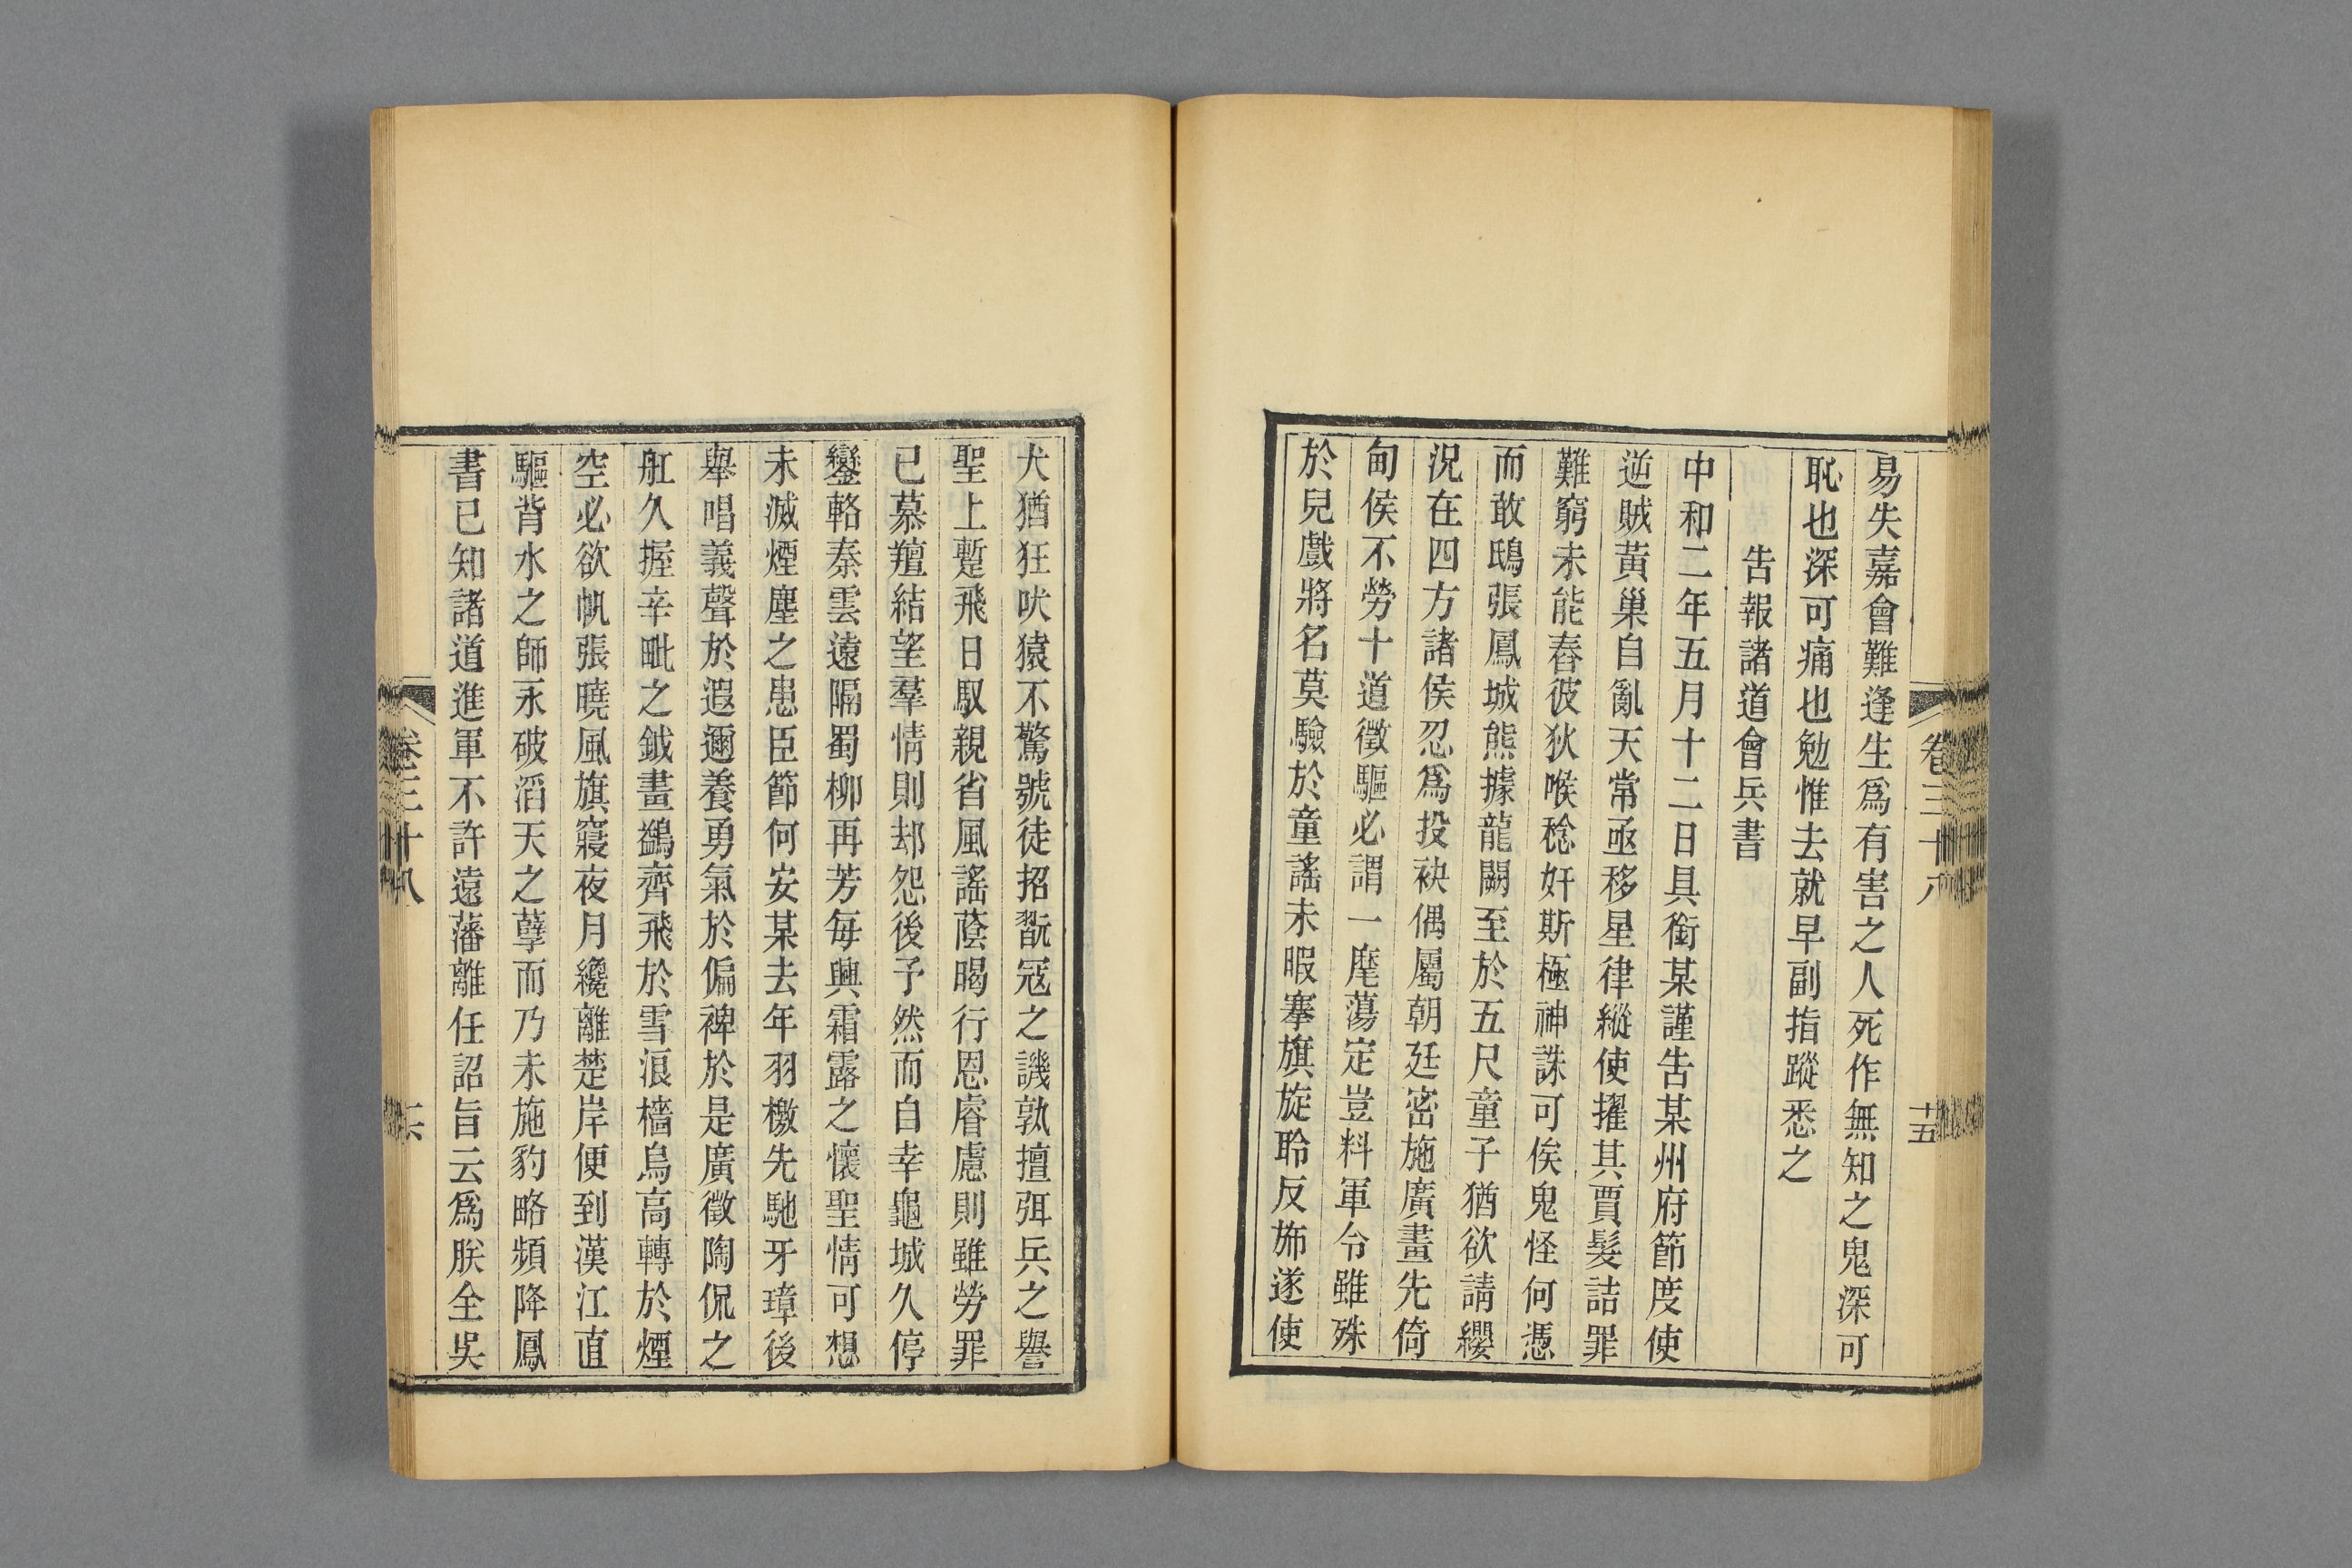 易失嘉會難逢生爲有害之人死作無知之鬼深可
恥也深可痛也勉惟去就早副指蹤悉之
告報諸道會兵書
中和二年五月十二日具銜某謹告某州府節度使
逆賊黃巢自亂天常亟移星律縱使擢其賈髮詰罪
難窮未能舂彼狄喉稔奸斯極神誅可俟鬼怪何憑
而敢鴟張鳳城熊據龍闕至於五尺童子猶欲請纓
況在四方諸侯忍爲投袂偶屬朝廷密施廣畫先倚
甸侯不勞十道徵驅必謂一麾蕩定豈料軍令雖殊
於兒戲將名莫驗於童謠未暇搴旗旋聆反斾遂使
卷三十八
十五
犬猶狂吠猿不驚號徒招翫冦之譏孰擅弭兵之譽
聖上蹔飛日馭親省風謠蔭暍行恩睿慮則雖勞罪
已慕羶結望羣情則却怨後予然而自幸龜城久停
鑾輅秦雲遠隔蜀柳再芳每興霜露之懷聖情可想
未滅煙塵之患臣節何安某去年羽檄先馳牙璋後
舉唱義聲於遐邇養勇氣於偏裨於是廣徵陶侃之
舡久握辛毗之鉞畫鷁齊飛於雪浪檣烏高轉於煙
空必欲帆張曉風旗寢夜月纔離楚岸便到漢江直
驅背水之師永破滔天之孽而乃未施豹略頻降鳳
書已知諸道進軍不許遠藩離任詔旨云爲朕全吳
卷三十八
十六